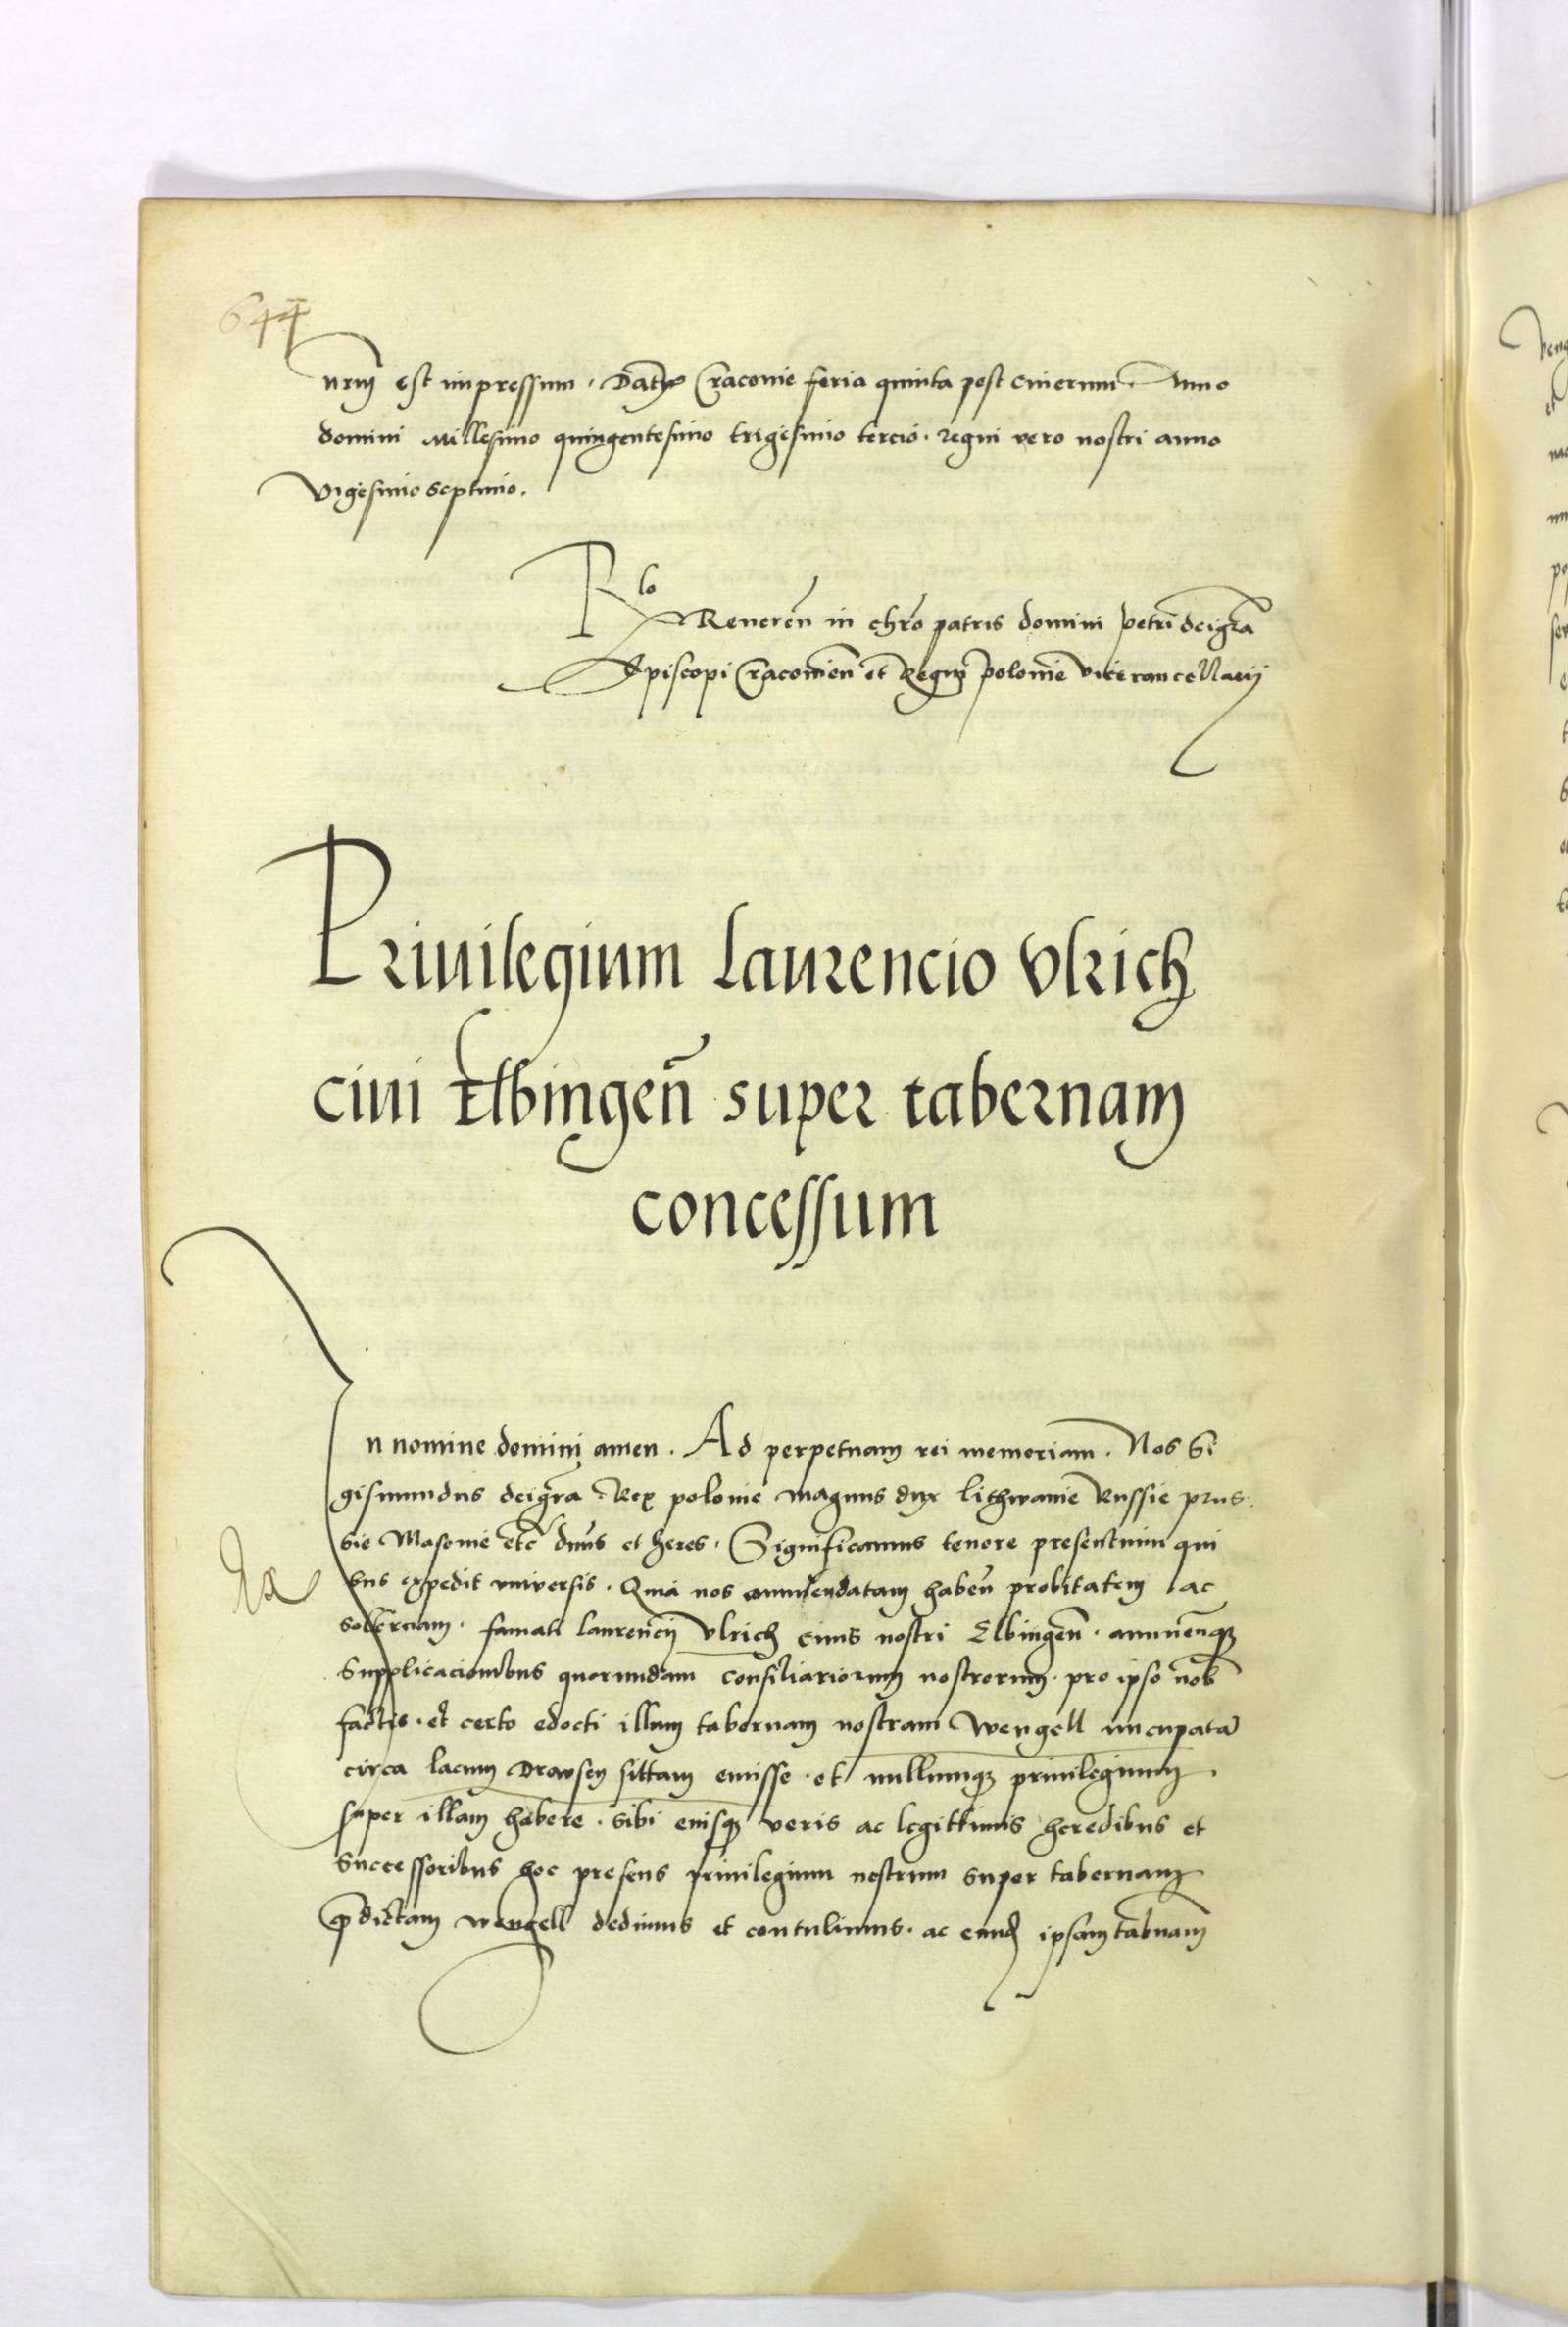 644
nrm̄ est impressum . Datum Cracovie feria quinta post cinerum . Anno
domini Millesimo quingentesimo trigesimo tercio . regni vero nostri anno
vigesimo septimo .
Rlo
Reveren̄ in chro patris domini petri dei gr̄a
Episcopi Cracovien̄ et Regni polonie vicecancellarij
Privilegium Laurencio Vlrich
civi Elbingen̄ super tabernam
concessum
In nomine domini amen . Ad perpetuam rei memoriam . Nos Si
gismundus dei gr̄a Rex polonie magnus dux lithwanie Russie prus
sie Masovie etc̄ dn̄us et heres . Significamus tenore presentium qui
bus expedit universis . Quia nos commendatam haben̄ probitatem ac
solerciam famati laurencij Vlrich civis nostri Elbingen̄ . annuen̄q;
supplicacionibus quorundam consiliariorum nostrorum pro ipso nob̄
factis . et certo edocti illum tabernam nostram Wengell nncupatā
circa lacum Drawsen sittam emisse . et nullumq; privilegium
super illam habere . sibi eiusq; veris ac legittimis heredibus et
successoribus hoc presens privilegium nostrum super tabernam
p̄dictam wengell dedimus et contulimus . ac eund ipsam tab̄nam